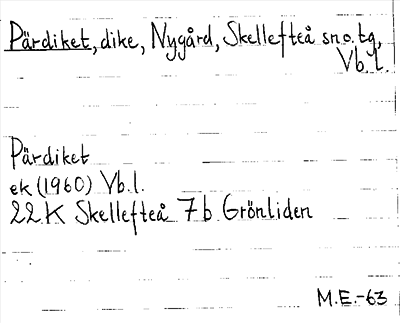 Pärdiket, dike, Nygård, Skellefteå sn o. tg,
Vb. l.
Pärdiket
ek (1960) Vb. l.
22 K Skellefteå 7 b Grönliden
M.E.-63